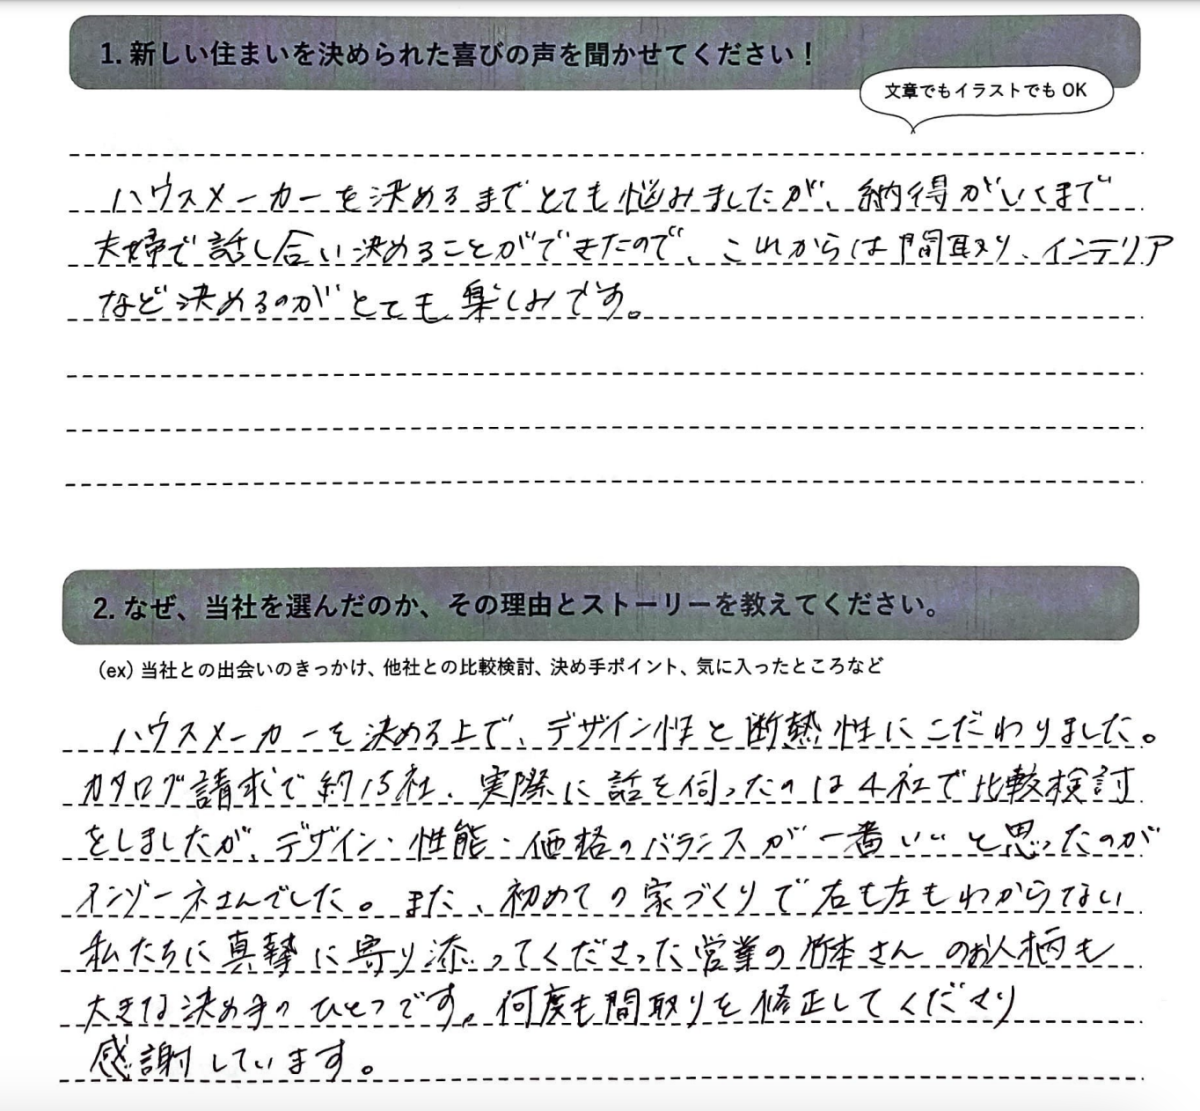 1. 新しい住まいを決められた喜びの声を聞かせてください！
文章でもイラストでも OK
ハウスメーカーを決めるまでとても悩みましたが、納得がいくまで
夫婦で話し合い決めることができたので、これからは間取り、インテリア
など決めるのがとても楽しみです。
2. なぜ、当社を選んだのか、その理由とストーリーを教えてください。
(ex) 当社との出会いのきっかけ、他社との比較検討、決め手ポイント、気に入ったところなど
ハウスメーカーを決める上で、デザイン性と断熱性にこだわりました。
カタログ請求で約15社、実際に話を伺ったのは4社で比較検討
をしましたが、デザイン・性能・価格のバランスが一番いいと思ったのが
インゾーネさんでした。また、初めての家づくりで右も左もわからない
私たちに真摯に寄り添ってくださった営業の竹本さんのお人柄も
大きな決め手のひとつです。何度も間取りを修正してくださり
感謝しています。